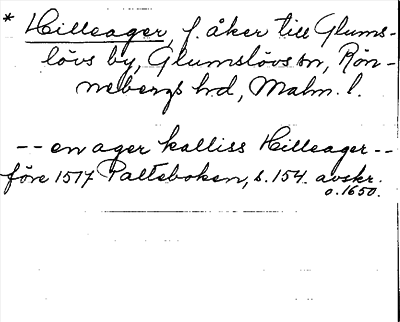 * Hilleager, f. åker till Glums-
lövs by, Glumslövs sn, Rön-
nebergs hd, Malm. l.
-- en ager kalliss Hilleager --
före 1517 Palteboken, s. 154. avskr.
o. 1650.